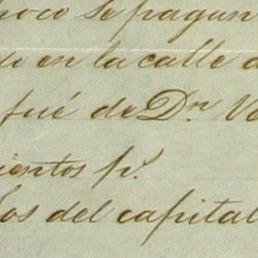 se pagan
en la calle
fué de Dn. Ve
ientos p.
os del capital